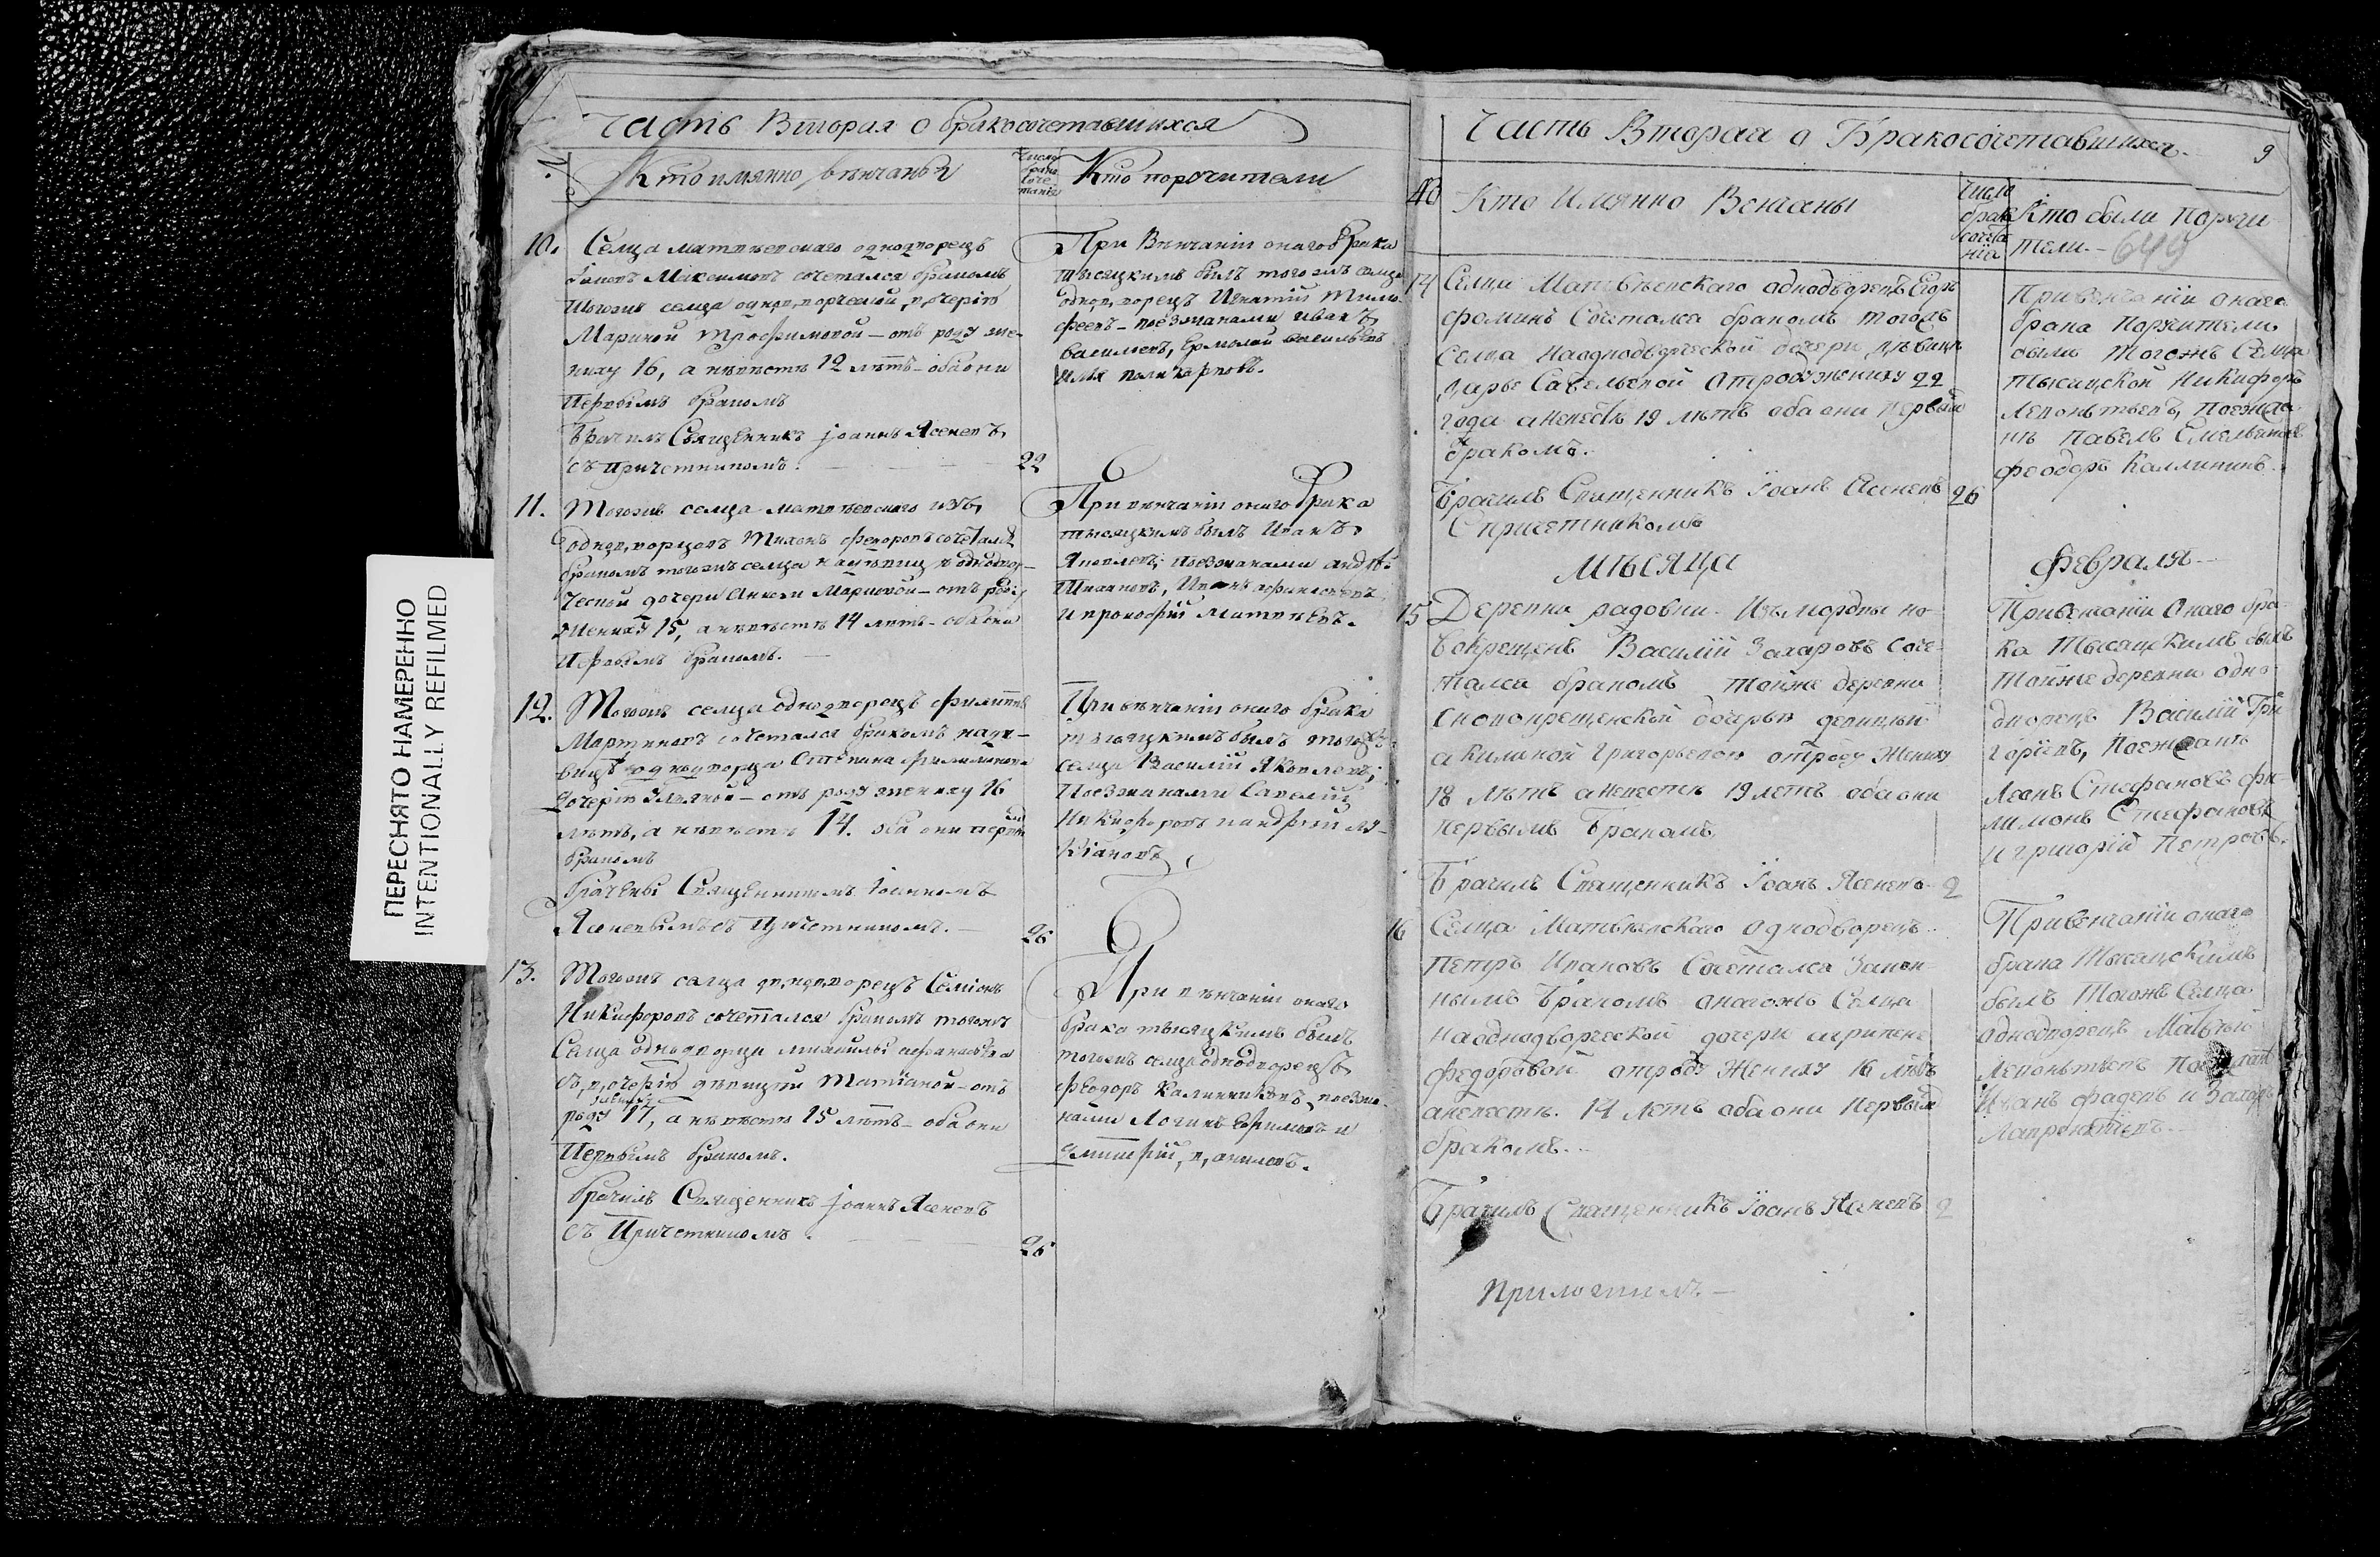 Часть Вторая о бракосочетавшихся
№
Кто имянно венчаны
Число брако соче тания
Кто поручители
10. Селца матвѣевскаго однодворецъ
Максимовъ сочетался бракомъ
тогожъ селца однодворческой дочерью
Мариной трофимовой – отъ роду же-
ниху 16, а невѣстѣ 12 лѣтъ – оба они
Первымъ бракомъ
Брачилъ Священникъ Iоаннъ Ясеневъ,
съ причетникомъ.
22
При Венчанiи онаго брака
тысяцкимъ былъ тогожъ селца
однодворецъ Игнатiй тимо-
феевъ – поезжанами иванъ
васильевъ, Ермолай васильевъ
илья поликарповъ.
11. Тогожъ селца матвѣевскаго изъ
однодворцовъ Тихонъ федоровъ сочетался
бракомъ тогожъ селца на девице однодвор-
ческой дочери Марковой – отъ роду
жениху 15, а невѣстѣ 14 летъ – оба они
Первымъ бракомъ. –
При венчанiи онаго брака
тысяцкимъ былъ Иванъ,
Яковлевъ; поезжанами андрей
Ивановъ, Иванъ
и прокофiй Матвѣевъ.
12. Тогожъ селца однодворецъ филиппъ
Мартиновъ сочетался бракомъ на де-
вице однодворца Степана филимонова
дочерью Ульяной – отъ роду жениху 16
лѣтъ, а невѣстѣ 14. оба они первымъ
бракомъ
брачены Священникомъ Iоанномъ
Ясеневымъ съ Причетникомъ. –
26
При венчанiи онаго брака
тысяцкимъ былъ тогожъ
селца Василiй Яковлевъ;
Поезжанами Савелiй
Никифоровъ и андрей лу-
кiановъ
13. Тогожъ селца однодворецъ Семiонъ
Никифоровъ сочетался бракомъ тогожъ
Селца однодворца михаилы афанасьева
съ дочерью девицею Татiаной – отъ
роду жениху 17, а невѣстѣ 15 лѣтъ – оба они
Первымъ бракомъ.
брачилъ Священникъ Iоаннъ Ясеневъ
съ Причетникомъ.
26
При венчанiи онаго
брака тысяцкимъ былъ
тогожъ селца однодворецъ
феодоръ Калинниковъ, поезжа-
нами Логинъ Ефимовъ и
дмитрiй даниловъ.
Часть Вторая о Бракосочетавшихся.
9
40
Кто Имянно Венчаны
Число брако сочета нiя
Кто были Поручи
тели. – 649
14 Селца Матвѣевскаго однодворецъ Егоръ
фоминъ Сочетался бракомъ тогожъ
селца на однодворческой дочери девице
дарье Савельевой отроду жениху 22
года а невестѣ 19 лѣтъ оба они первымъ
бракомъ.
Брачилъ Священникъ Iоанъ Ясеневъ
26
Спричетникомъ
Привенчанiи онаго
брака Поручители
были тогожъ Селца
тысяцкой Никифоръ
Леоньтьевъ, поежжа-
нѣ павелъ Емельяновъ
феодоръ Калининъ.
Мѣсяца Февраля –
15 Деревни радовки. Изъ мордвы но-
вокрещенъ Василiй Захаровъ соче-
тался бракомъ тойже деревни
сновокрещенской дочерью девицей
акилиной григорьевой отроду Жениху
18 лѣтъ а невестѣ 19 летъ оба они
первымъ Бракомъ
Брачилъ Священникъ Iоанъ Ясеневъ
2
Привенчанiи Онаго бра-
ка Тысяцкимъ былъ
тойже деревни одно-
дворецъ Василiй Гри
горiевъ, поежжанѣ
Леонъ Стефановъ фи-
лимонъ Стефановъ
и григорiй Петровъ.
16 Селца Матвѣевскаго однодворецъ
Петръ Ивановъ Сочетался Закон
нымъ Бракомъ онагожъ Селца
на однодворческой дочери агрипене
федоровой отроду Жениху 16 лѣтъ
аневестѣ. 14 летъ оба они Первымъ
бракомъ. –
Брачилъ Священникъ Iоанъ Ясеневъ
2
Привенчанiи онаго
брака Тысяцкимъ
былъ Тогожъ Селца
однодворецъ Матвей
Леоньтьевъ Поежжанѣ
Иванъ фадеевъ и Захаръ
Лаврентьевъ. –
ПЕРЕСНЯТО НАМЕРЕННО
INTENTIONALLY REFILMED